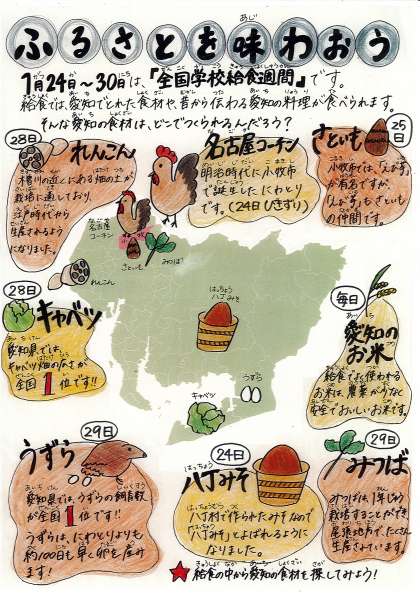 ふるさとを味わおう
1月24日～30日は、『全国学校給食週間』です。
給食では、愛知でとれた食材や、昔から伝わる愛知の料理が食べられます。
そんな愛知の食材は、どこでつくられるんだろう？
28日
れんこん
木曽川の近くにある畑の土が
栽培に適しており、
江戸時代から
生産されるように
なりました。
名古屋コーチン
明治時代に小牧市
で誕生したにわとり
です。（24日ひきずり）
さといも
25日
小牧市では、「えぶ芋」
が有名ですが、
「えぶ芋」もさといも
の仲間です。
名古屋
コーチン
さといも
みつば
れんこん
はっちょう
八丁みそ
うずら
キャベツ
28日
キャベツ
愛知県では、
キャベツ畑の広さが
全国1位です!!
毎日
愛知の
お米
給食でも使われる
お米は、農薬が少なく
安全でおいしいお米です。
29日
うずら
愛知県では、うずらの飼育数
が全国1位です!!
うずらは、にわとりよりも
約100日も早く卵を産み
ます！
24日
はっちょう
八丁みそ
八丁村で作られたみそなので
「八丁みそ」とよばれるように
なりました。
29日
みつば
みつばは1年じゅう
栽培することができ、
尾張地方で、たくさん
生産されています。
★給食の中から愛知の食材を探してみよう！